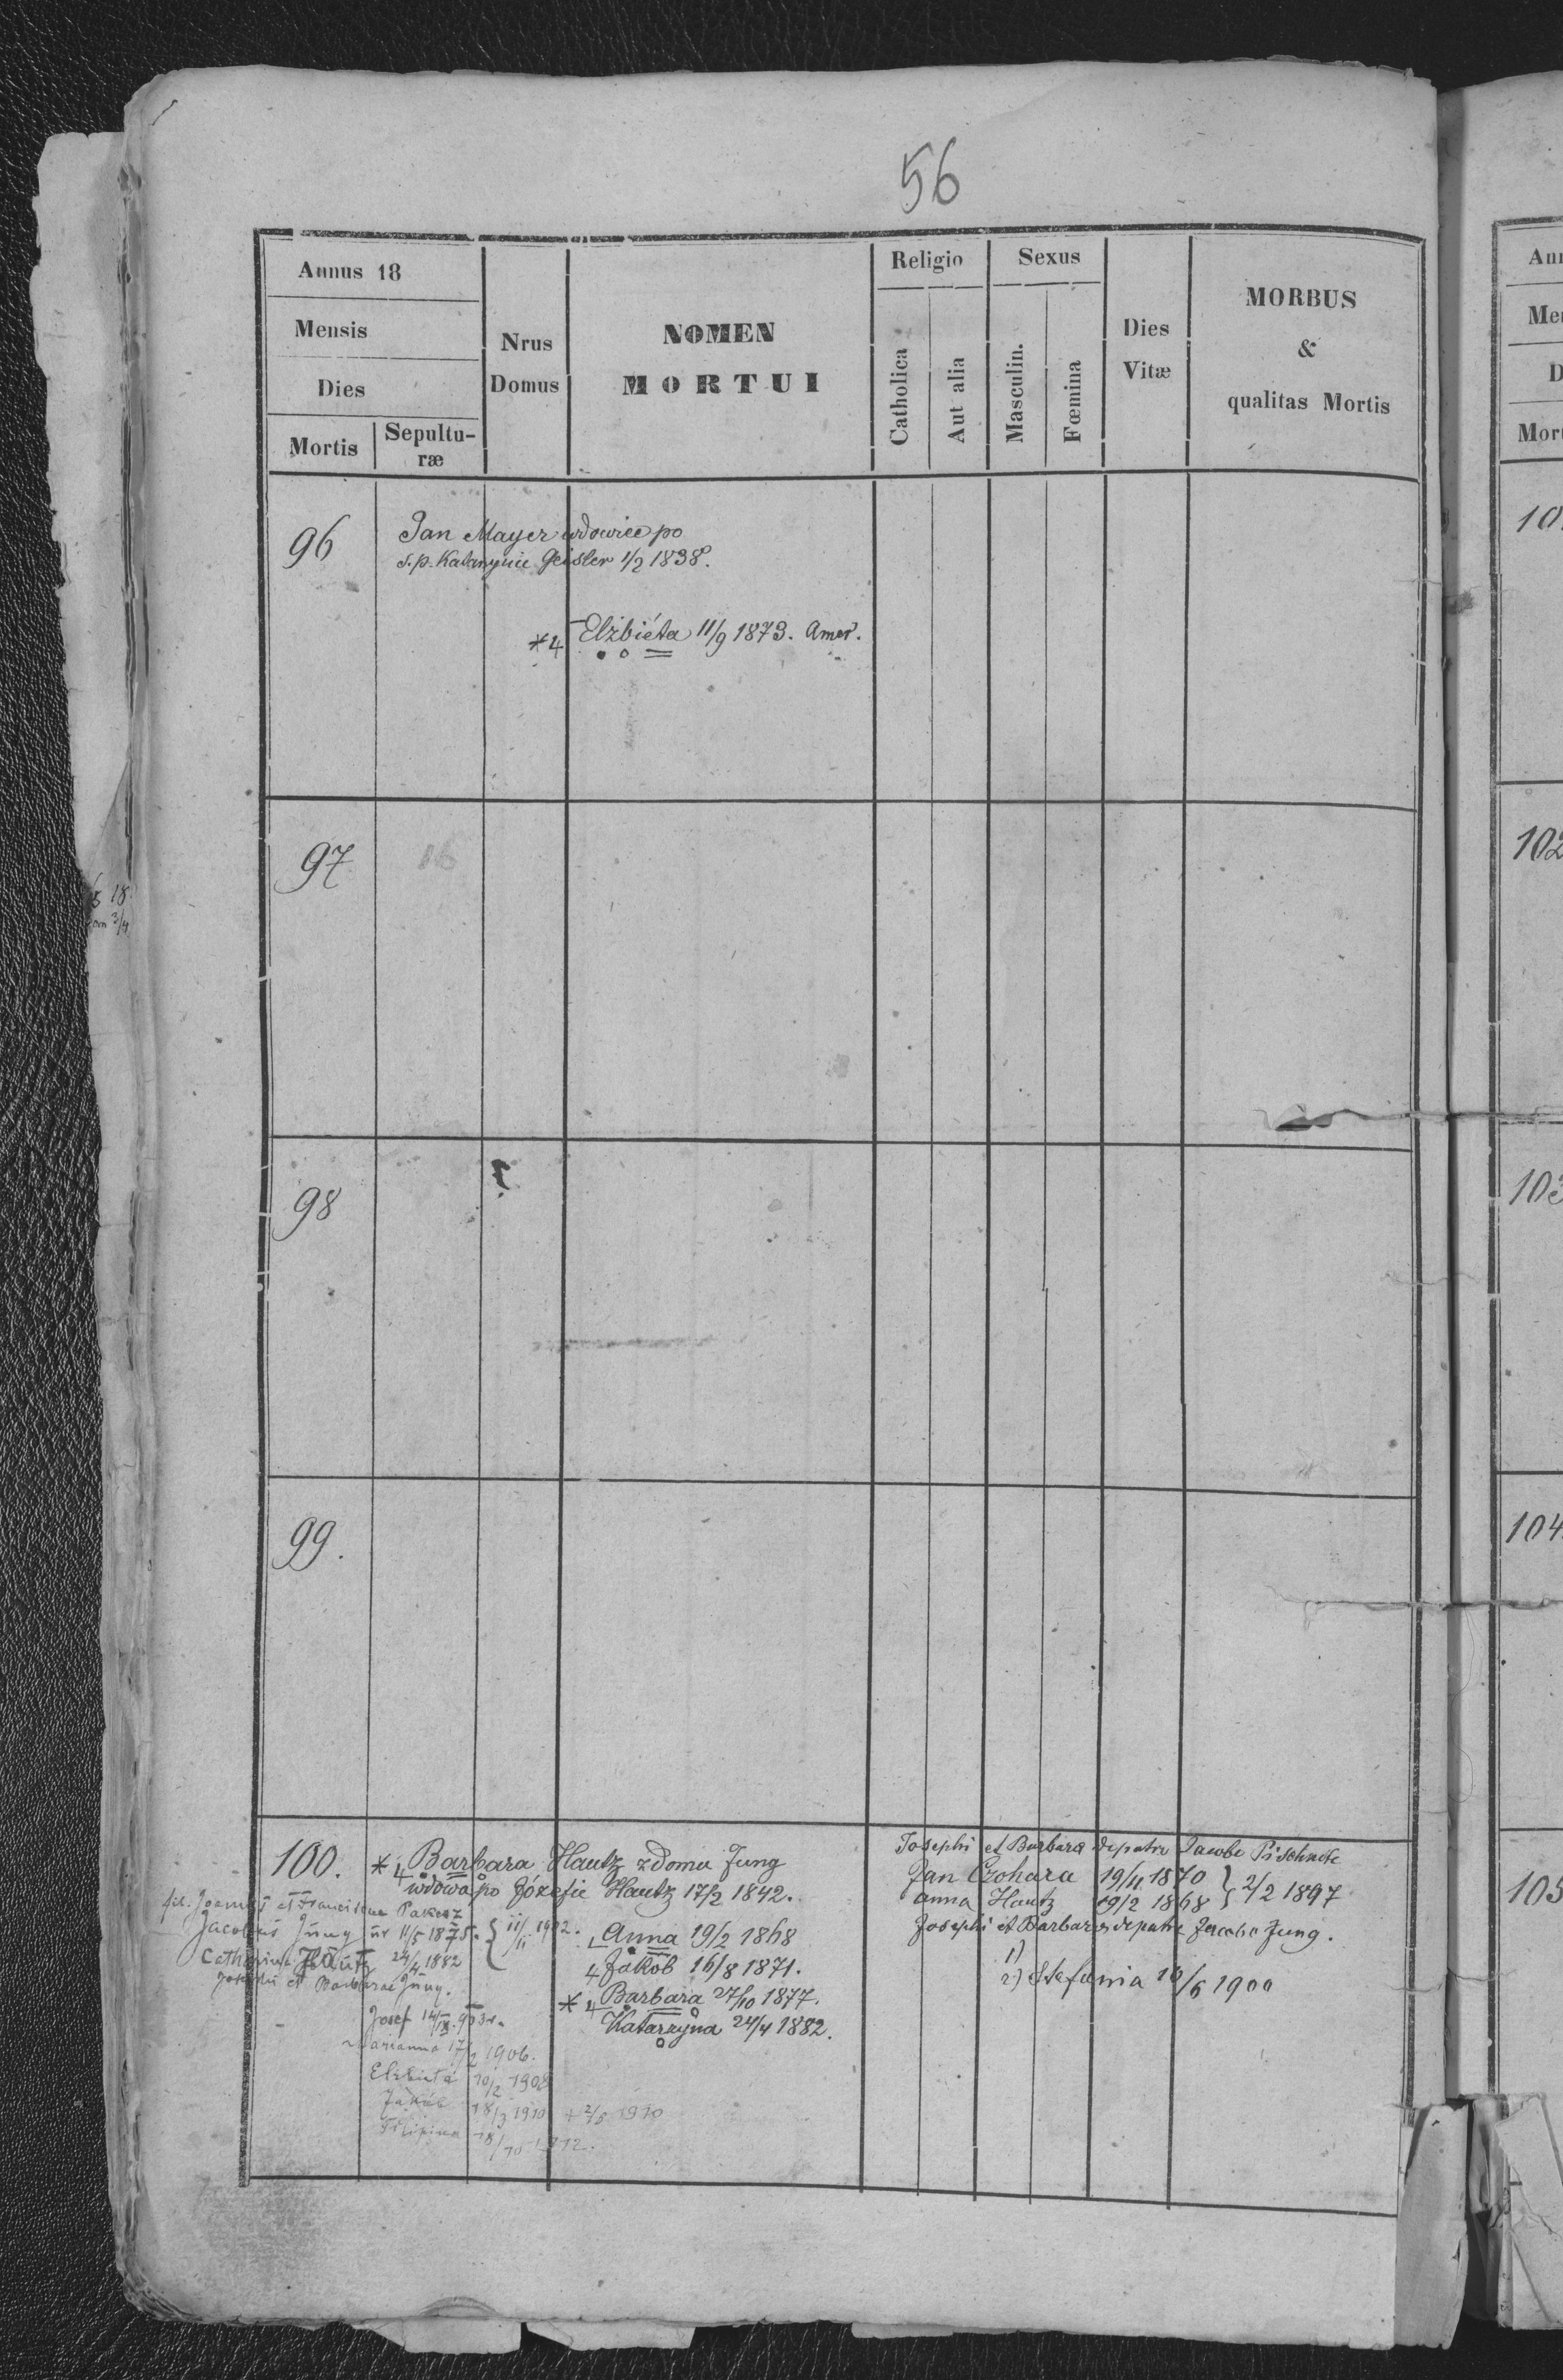 56
Annus 18
Mensis
Dies
Mortis
Sepultu-
ræ
Nrus
Domus
NOMEN
MORTUI
Religio
Catholica
Aut alia
Sexus
Masculin.
Fœmina
Dies
Vitæ
MORBUS
&
qualitas Mortis
96
Jan Mayer wdowiec po
s.p. Katarzynie Geisler 1/2 1838.
*4 Elżbiéta 11/9 1873. Amer.
97
16
98
99.
100.
*4 Barbara Hautz z domu Jung
wdowa po Józefie Hautz 17/2 1842.
Anna 19/2 1868
4 Jakób 16/8 1871.
*4 Barbara 27/10 1877.
Katarzyna 24/4 1882.
fil. Joannis et Franciscae
Jacobus Jung ur 11/5 1875.
Catharina Hautz 24/4 1882
Josephi et Barbarae Jung.
11/11 1902.
Josef 14/IX
Marianna 17/2 1906.
Elżbieta 10/2 1908
Jakób 18/3 1910 + 2/5 1910
Filipina 18/10 1912.
Josephi et Barbara de patre Jacobo
Jan Czohara 19/4 1870
Anna Hautz 19/2 1868 } 2/2 1897
Josephi et Barbara de patre Jacobo Jung.
1)
2) Stefania 10/6 1900
Ann
Me
D
Mor
10
102
103
104
105